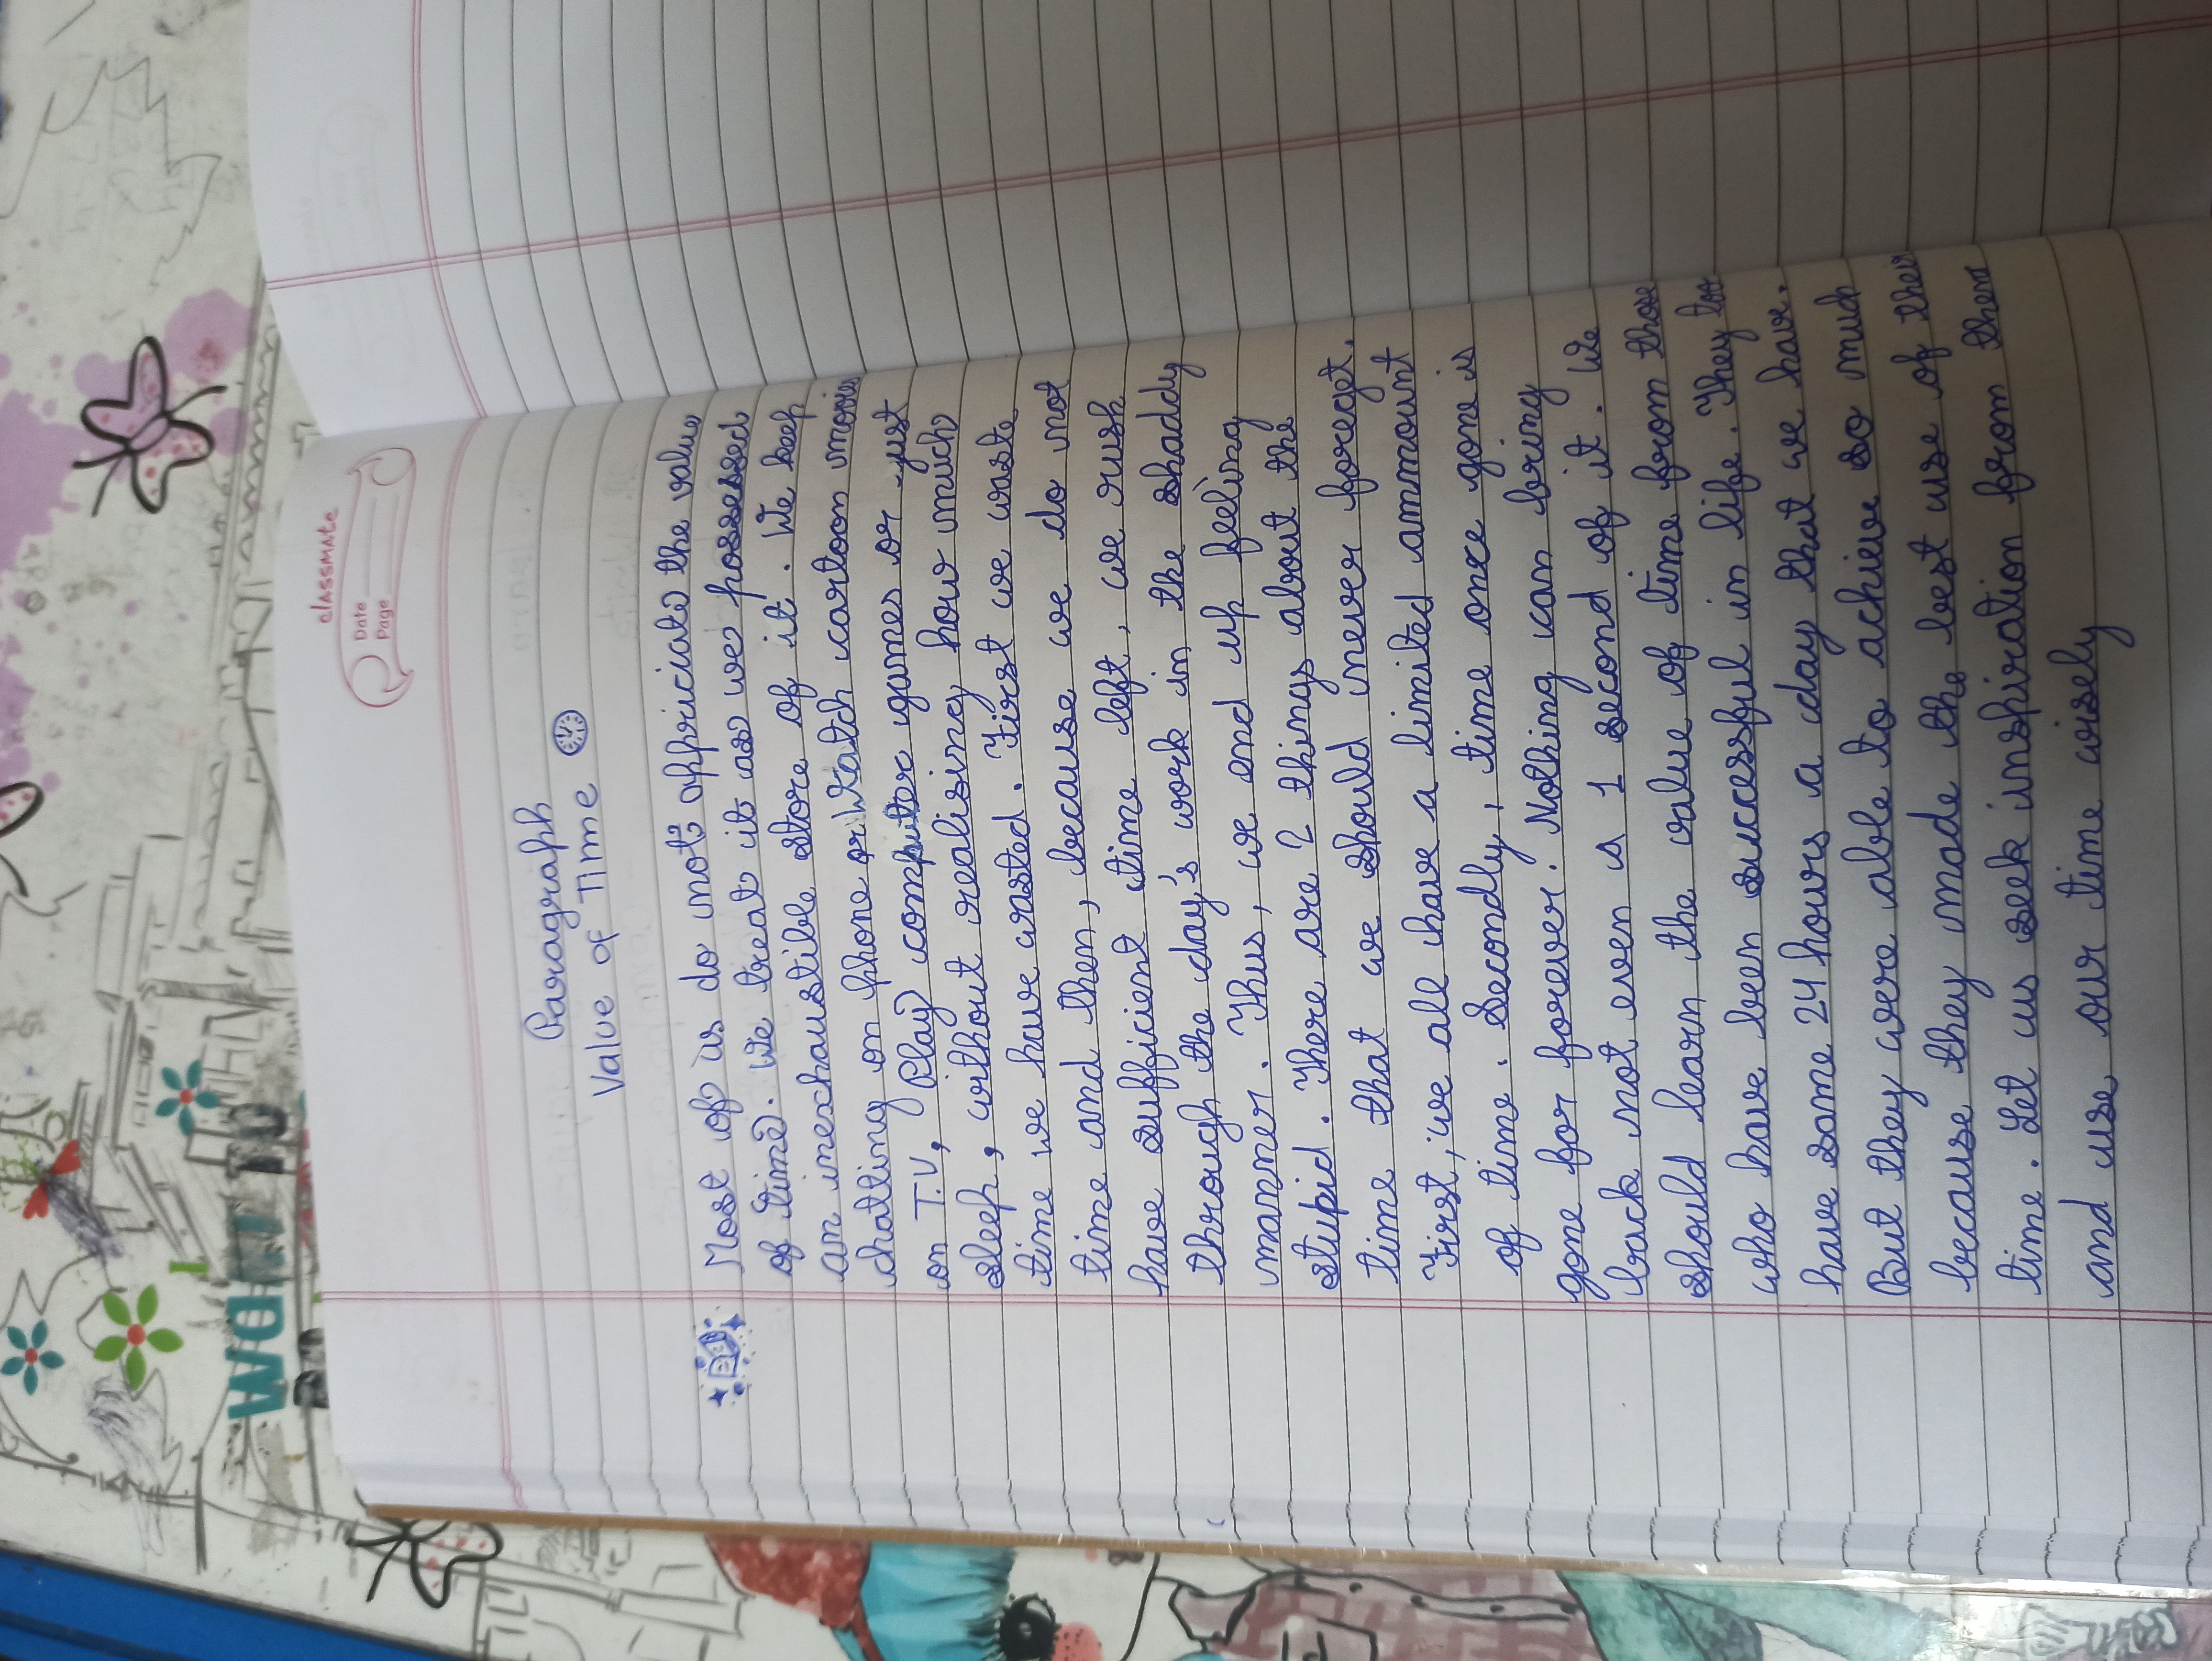 classmate
Date
Page
Paragraph
Value of Time
Most of us do not appriciate the value
of time. We treat it as we possessed
an inexhaustible store of it. We keep
chatting on phone or Watch cartoon movies
on T.V, Play computer games or just
sleep, without realising how much
time we have wasted. First we waste
time and then, because we do not
have sufficient time left, we rush
through the day's work in the shaddy
manner. Thus, we end up feeling
stupid. There are 2 things about the
time that we should never foreget.
First, we all have a limited ammount
of time. Secondly, time once gone is
gone for forever. Nothing can bring
back not even is 1 second of it. We
should learn the value of time from those
who have been successful in life. They too
have same 24 hours a day that we have.
But they were able to achieve so much
because they made the best use of their
time. Let us seek inspiration from them
and use our time wisely
WOM TO